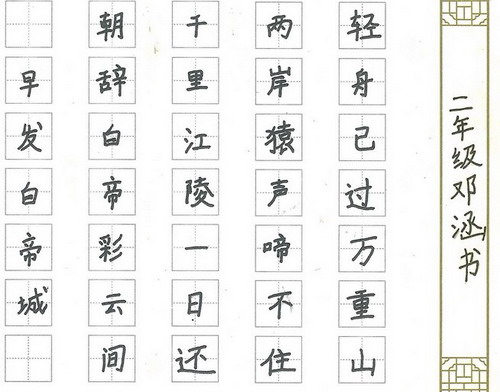 早发白帝城
朝辞白帝彩云间
千里江陵一日还
两岸猿声啼不住
轻舟已过万重山
二年级邓涵书